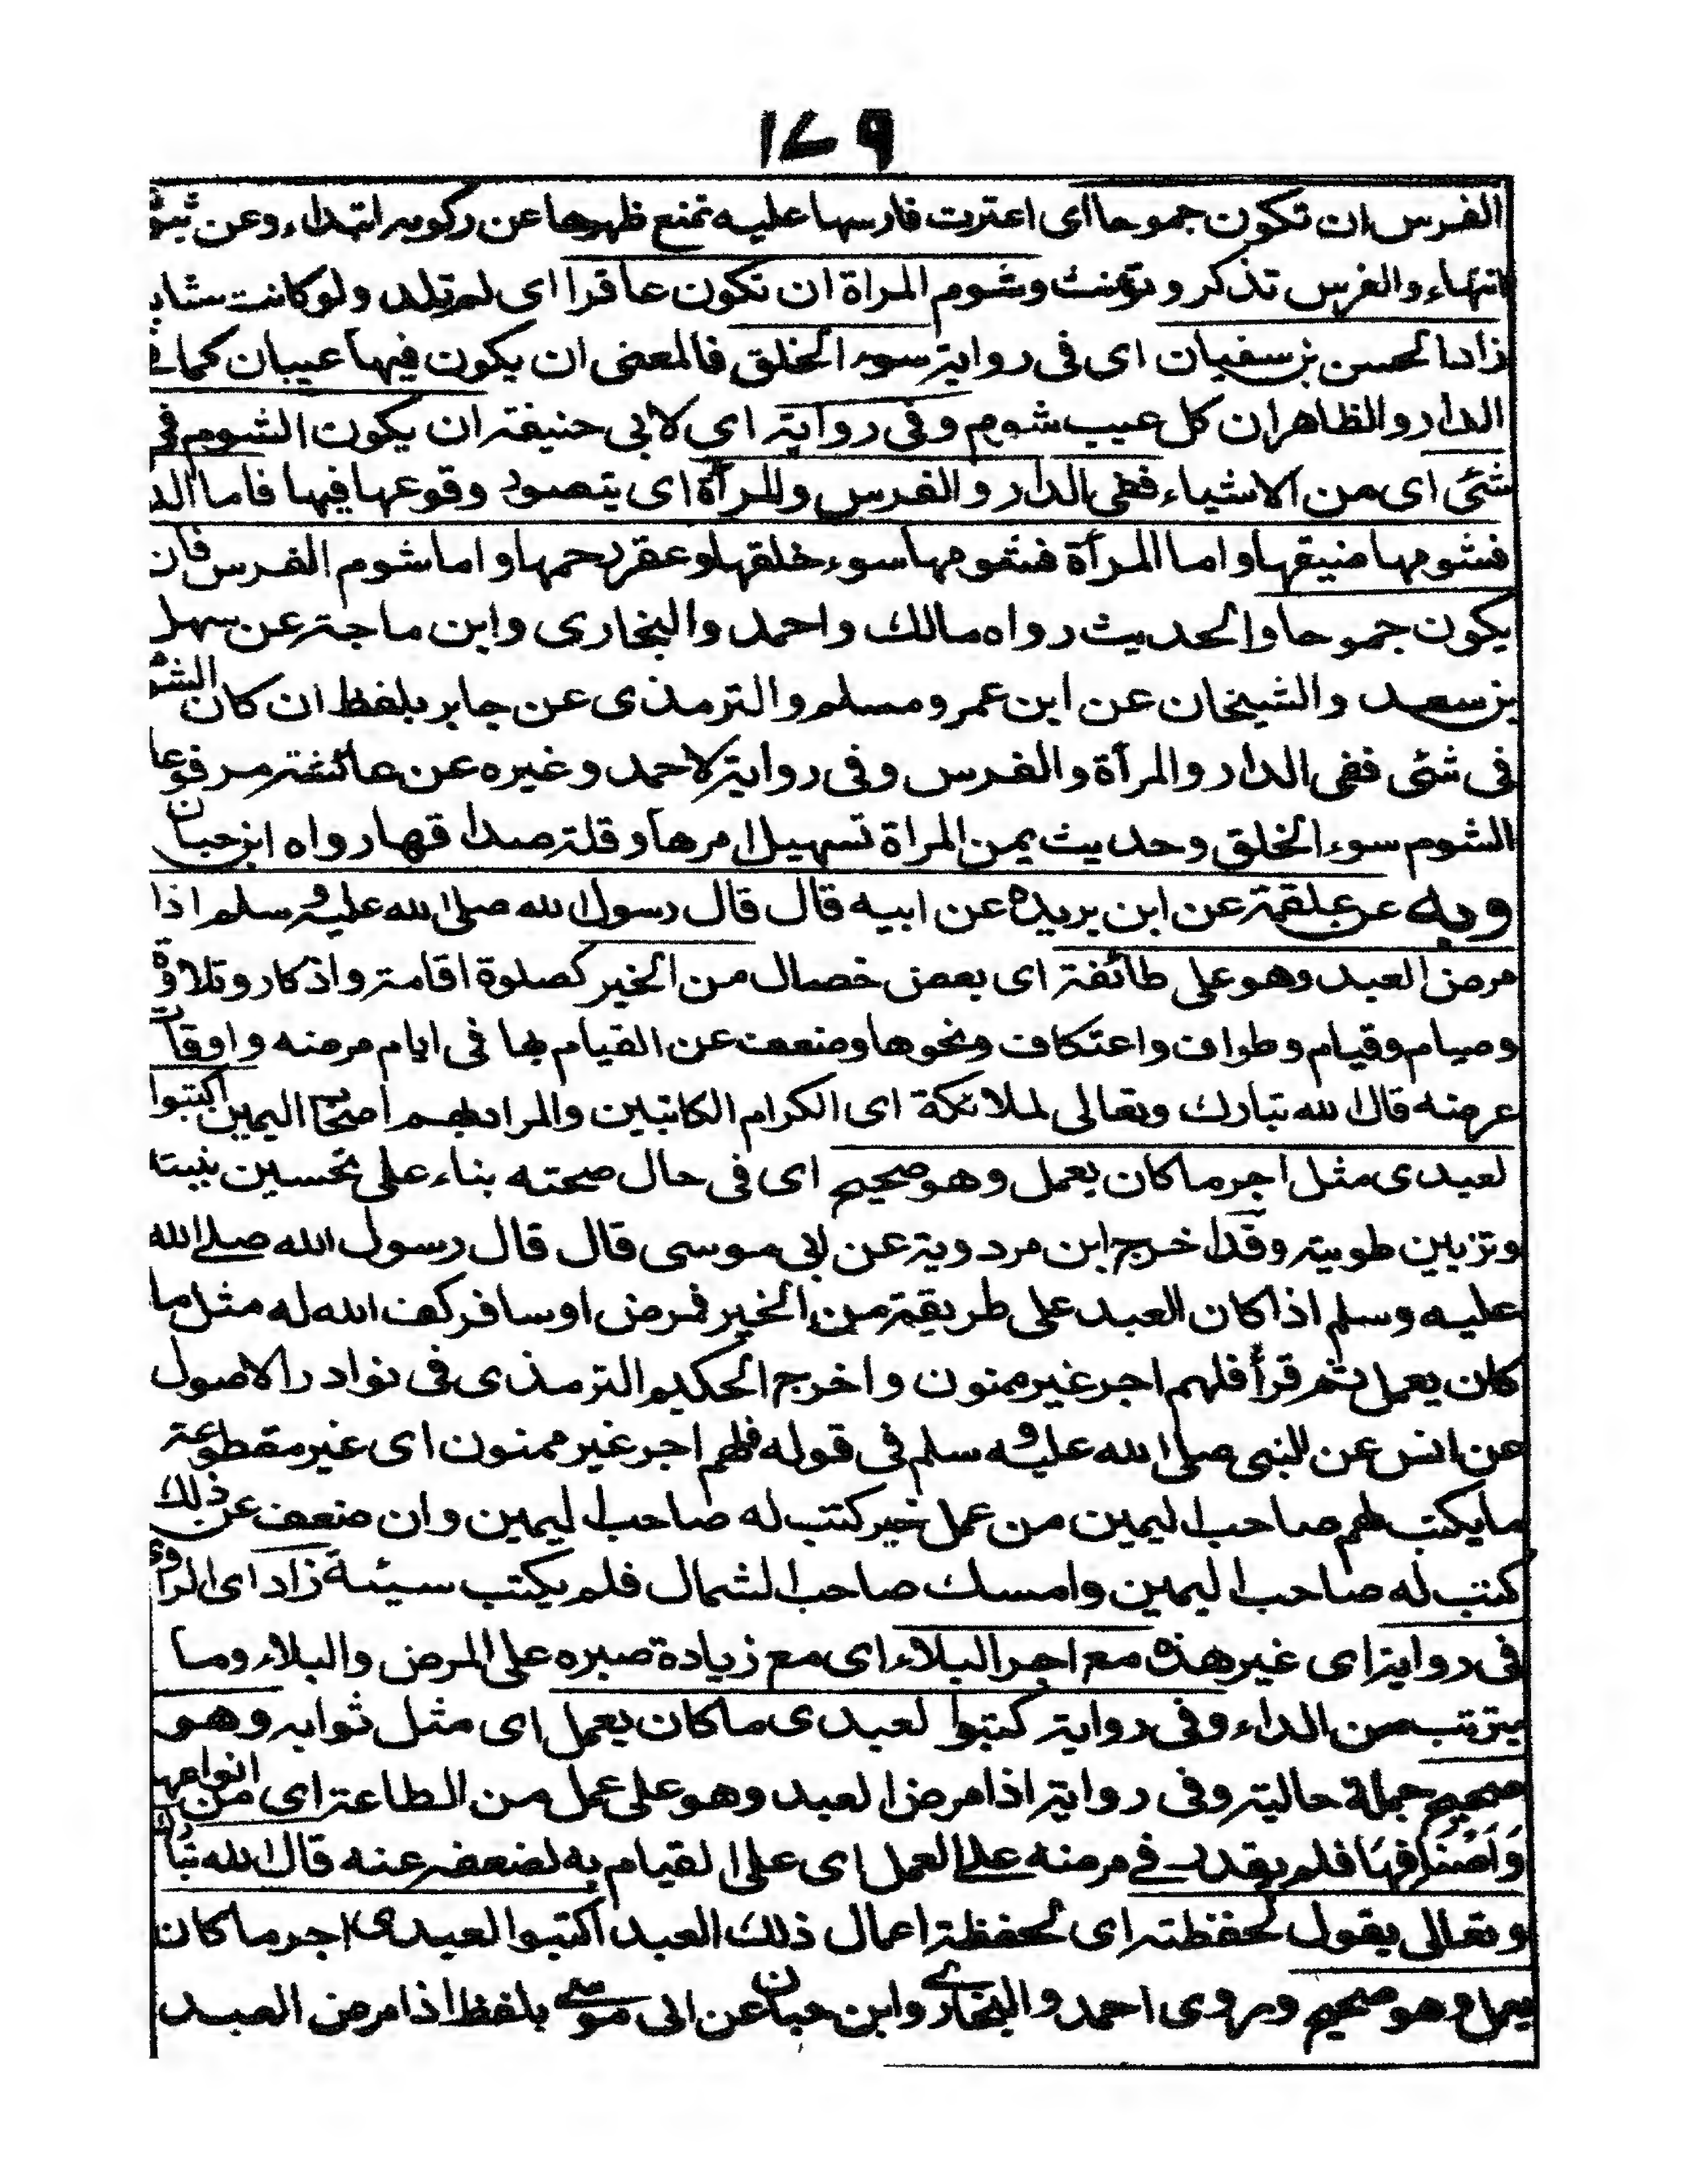 ١٧٩
الفرس ان تكون جموحا اى اعترت فارسها عليه تمنع ظهرها عن ركوبه ابتداء وعن
انتهاء والفرس تذكر وتؤنث وشوم المراة ان تكون عاقرا اى لم تلد ولو كانت شابة
زاد الحسن بن سفيان اى فى رواية سوء الخلق فالمعنى ان يكون فيها عيبان كما فى
الدار والظاهر ان كل عيب شوم وفى رواية اى لابى حنيفة ان يكون الشوم فى
شئى اى من الاشياء ففى الدار والفرس والمرأة اى يتصور وقوعها فيها فاما الدار
فشومها ضيقها واما المرأة فشومها سوء خلقها وعقر رحمها واما شوم الفرس فان
يكون جموحا والحديث رواه مالك واحمد والبخارى وابن ماجة عن سهل
بن سعد والشيخان عن ابن عمر ومسلم والترمذى عن جابر بلفظ ان كان الشوم
فى شئى ففى الدار والمرآة والفرس وفى رواية لاحمد وغيره عن عائشة مرفوعا
الشوم سوء الخلق وحديث يمن المراة تسهيل امرها وقلة صداقها رواه ابن حبان
وبه عن علقمة عن ابن بريدة عن ابيه قال قال رسول الله صلى الله عليه وسلم اذا
مرض العبد وهو على طائفة اى بعض خصال من الخير كصلوة اقامة واذكار وتلاوة
وصيام وقيام وطواف واعتكاف ونحوها وضعف عن القيام بها فى ايام مرضه واوقات
عرضه قال الله تبارك وتعالى لملائكة اى الكرام الكاتبين والمراد بهم اصحاب اليمين اكتبوا
لعبدى مثل اجر ما كان يعمل وهو صحيح اى فى حال صحته بناء على تحسين نيته
وتزيين طويته وقد اخرج ابن مردوية عن ابى موسى قال قال رسول الله صلى الله
عليه وسلم اذا كان العبد على طريقة من الخير فمرض او سافر كتب الله له مثل ما
كان يعمل ثم قرأ فلهم اجر غير ممنون واخرج الحكيم الترمذى فى نوادر الاصول
عن انس عن النبى صلى الله عليه وسلم فى قوله فلهم اجر غير ممنون اى غير مقطوعة
ما يكتب لهم صاحب اليمين من عمل خير كتب له صاحب اليمين وان ضعف عن ذلك
كتب له صاحب اليمين وامسك صاحب الشمال فلم يكتب سيئة زاد اى الراوى
فى رواية اى غير هذه مع اجر البلاء اى مع زيادة صبره على المرض والبلاء وما
يترتب من الداء وفى رواية كتبوا لعبدى ما كان يعمل اى مثل ثوابه وهو
صحيح جملة حالية وفى رواية اذا مرض العبد وهو على عمل من الطاعة اى من انواعها
وَاَصْنَافِهَا فلم يقدر فى مرضه على العمل اى على القيام به لضعفه عنه قال الله تبارك
وتعالى يقول لحفظته اى لحفظة اعمال ذلك العبد اكتبوا لعبدى اجر ما كان
يعمل وهو صحيح وروى احمد والبخارى وابن حبان عن ابى موسى بلفظ اذا مرض العبد